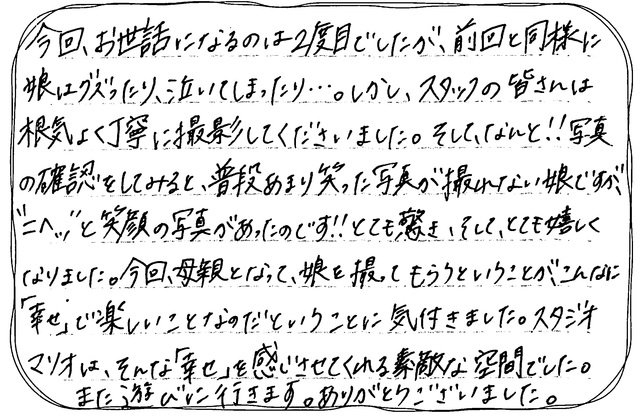 今回、お世話になるのは2度目でしたが、前回と同様に
娘はグズったり、泣いてしまったり…。しかし、スタッフの皆さんは
根気よく丁寧に撮影してくださいました。そして、なんと!!写真
の確認をしてみると、普段あまり笑った写真が撮れない娘ですが、
"ニヘッ"と笑顔の写真があったのです!!とても驚き、そして、とても嬉しく
なりました。今回、母親となって、娘を撮ってもらうということが、こんなに
「幸せ」で楽しいことなのだということに気付きました。スタジオ
マリオは、そんな「幸せ」を感じさせてくれる素敵な空間でした。
また遊びに行きます。ありがとうございました。